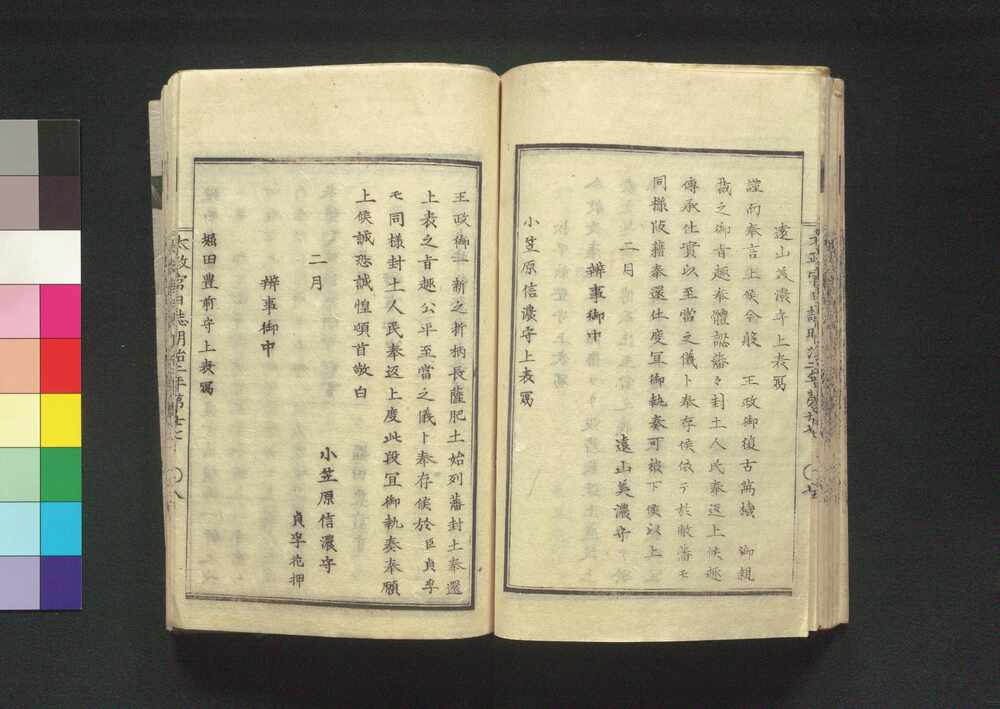 遠山美濃守上表寫
謹而奉言上候今般 王政御復古萬機 御親
裁之御旨趣奉體認藩々封土人民奉返上候趣
傳承仕實以至當之儀ト奉存候依テ於敝藩モ
同樣版籍奉還仕度冝御執奏可被下候以上
二月 遠山美濃守
辨事御中
小笠原信濃守上表寫
王政御一新之折柄長薩肥土始列藩封土奉還
上表之旨趣公平至當之儀ト奉存候於臣貞孚
モ同樣封土人民奉返上度此段冝御執奏奉願
上候誠恐誠惶頓首敬白
小笠原信濃守
二月 貞孚花押
辨事御中
堀田豊前守上表寫
太政官日誌明治二年第廿七 八